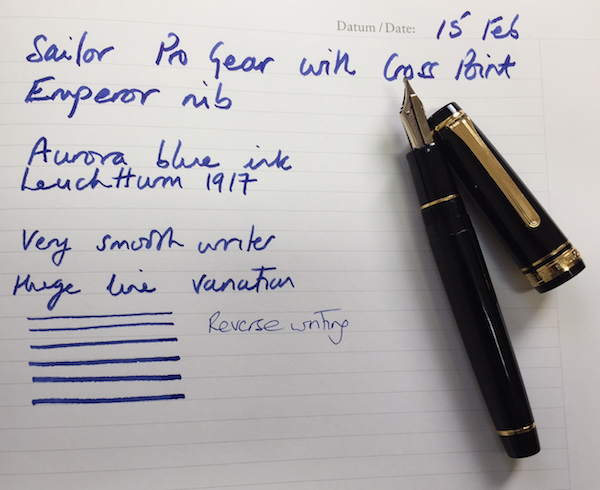 Datum / Date: 15 Feb
Sailor Pro Gear with Cross Point
Emperor nib
Aurora blue ink
Leuchtturm 1917
Very smooth writer
Huge line variation
Reverse writing